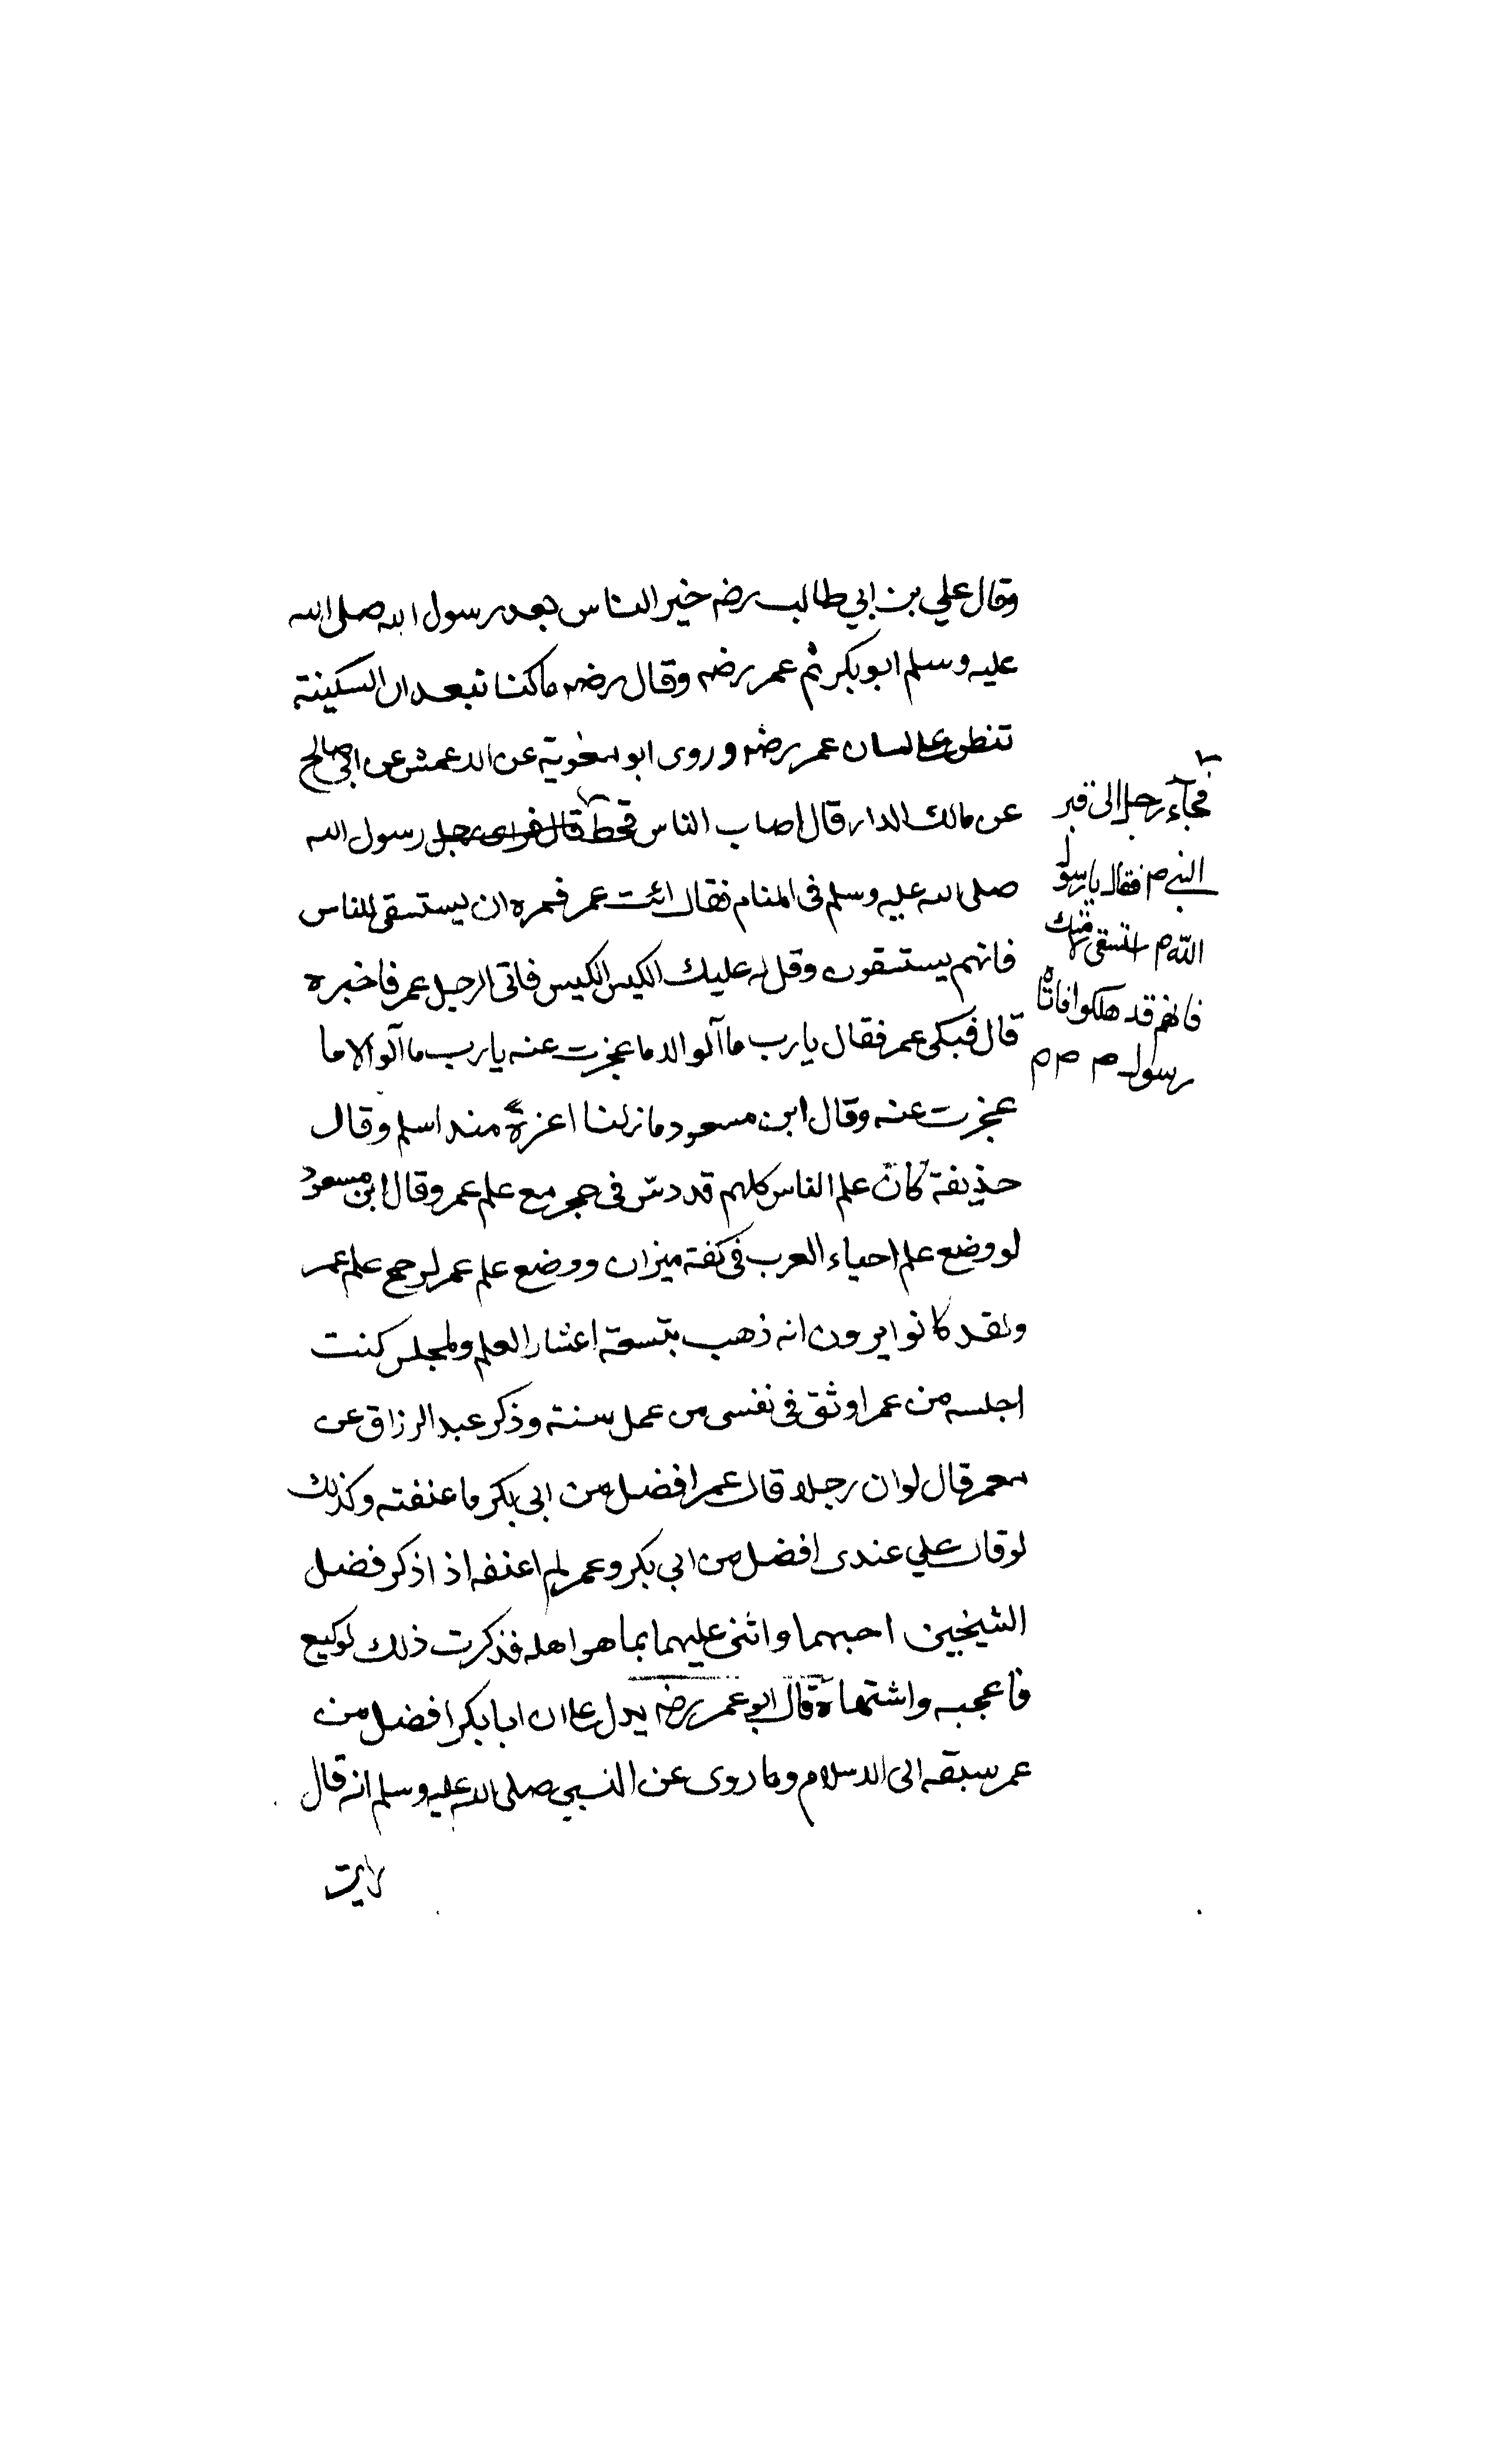 وقال علي بن ابي طالب رضه خير الناس بعد رسول الله صلى الله
عليه وسلم ابو بكر ثم عمر رضه وقال رضه ما كنا نبعد ان السكينة
تنطق على لسان عمر رضه وروى ابو معوية عن الاعمش عن ابي صالح
عن مالك الدار قال اصاب الناس قحط قال فراى رجل رسول الله
صلى الله عليه وسلم فى المنام فقال ائت عمر فمره ان يستسقى للناس
فانهم يستسقون وقل له عليك الكيس الكيس فاتى الرجل عمر فاخبره
قال فبكى عمر فقال يا رب ما آلو الا ما عجزت عنه يا رب ما آلو الا ما
عجزت عنه وقال ابن مسعود ما زلنا اعزة منذ اسلم وقال
حذيفة كان علم الناس كلهم قد دس فى حجر مع علم عمر وقال ابن مسعود
لو وضع علم احياء العرب فى كفة ميزان ووضع علم عمر لرجح علم عمر
ولقد كانوا يرون انه ذهب بتسعة اعشار العلم ولمجلس كنت
اجلسه من عمر اوثق فى نفسى من عمل سنة وذكر عبد الرزاق عن
معمر قال لو ان رجلا قال عمر افضل من ابى بكر ما عنفته وكذلك
لو قال علي عندى افضل من ابي بكر وعمر لم اعنفه اذ اذكر فضل
الشيخين احبهما واثنى عليهما بما هو اهله فذكرت ذلك لوكيع
فاعجبه واشتهاه قال ابو عمر رضه يدل على ان ابا بكر افضل من
عمر سبقه الى الاسلام وما روى عن النبي صلى الله عليه وسلم انه قال
فجآء رجل الى قبر
النبي م فقال يا رسول
الله م استسقى لامتك
فانهم قد هلكوا فاتاه
رسول م م م